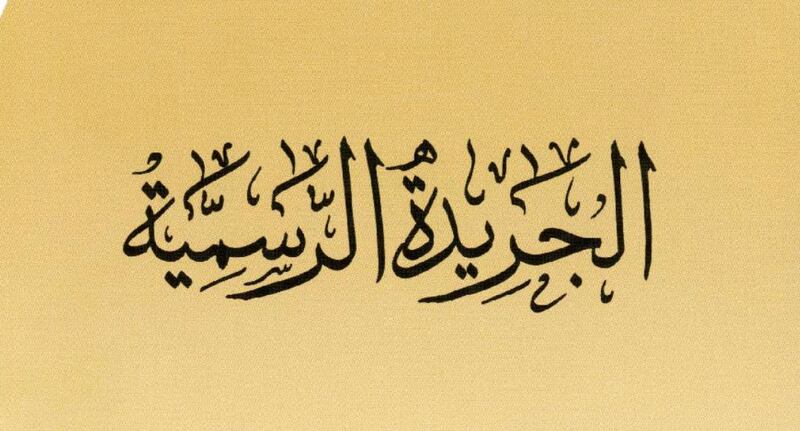 الجَرِيدةُ الرَّسمِيَّةُ